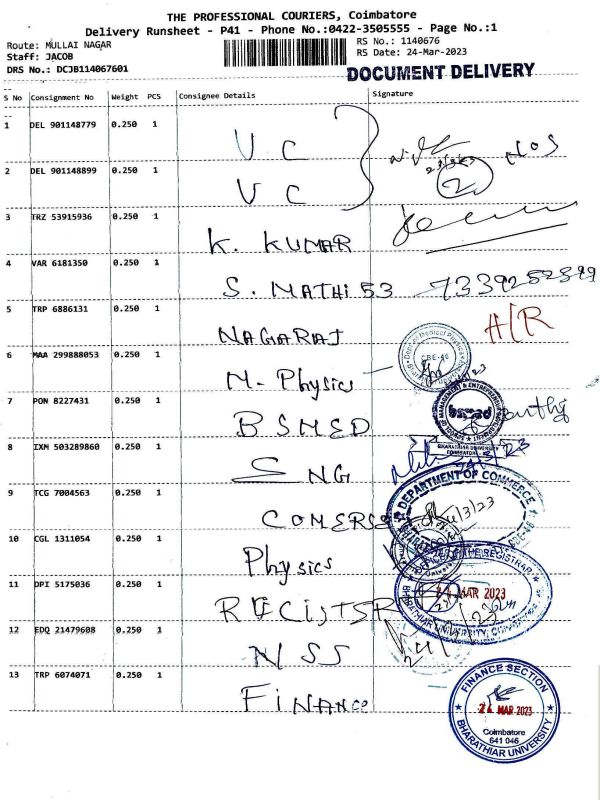 THE PROFESSIONAL COURIERS, Coimbatore
Delivery Runsheet - P41 - Phone No.:0422-3505555 - Page No.:1
Route: MULLAI NAGAR
RS No.: 1140676
Staff: JACOB
RS Date: 24-Mar-2023
DRS No.: DCJB114067601
DOCUMENT DELIVERY
S No Consignment No Weight PCS Consignee Details Signature
1 DEL 901148779 0.250 1 V C
2 DEL 901148899 0.250 1 V C
3 TRZ 53915936 0.250 1 K. KUMAR
4 VAR 6181350 0.250 1 S. MATHI 53 7339252399
5 TRP 6886131 0.250 1 NAGARAJ A/R
6 MAA 299888053 0.250 1 M. Physics
7 PON 8227431 0.250 1 BSMED
8 IXM 503289860 0.250 1 SNG
9 TCG 7004563 0.250 1 COMERSE
DEPARTMENT OF COMMERCE
10 CGL 1311054 0.250 1 Physics
11 DPI 5175036 0.250 1 RECIJTSR
24 MAR 2023
12 EDQ 21479608 0.250 1 NSS
13 TRP 6074071 0.250 1 FINANCE
FINANCE SECTION
24 MAR 2023
Coimbatore
641 046
BHARATHIAR UNIVERSITY